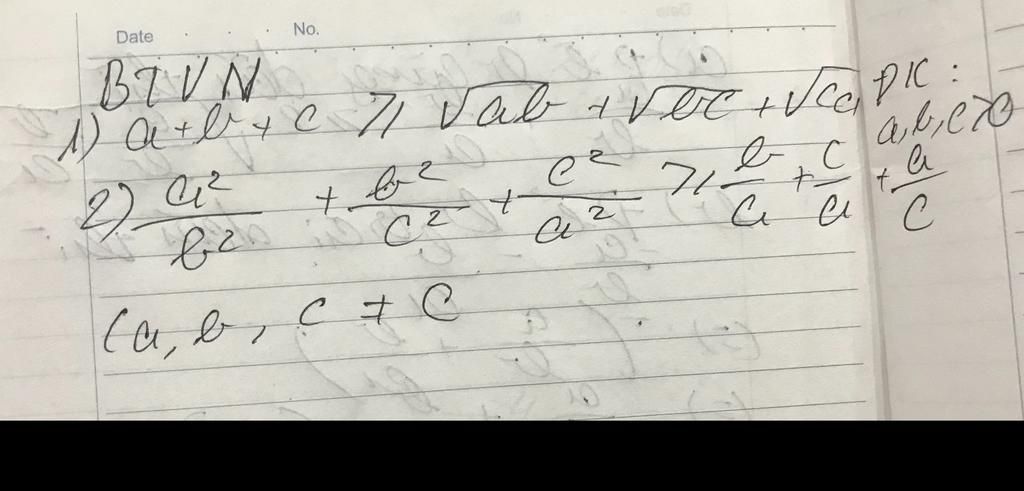 Date No.
BTVN
1) a+b+c ≥ √ab + √bc + √ca ĐK:
a,b,c≥0
2) a²/b² + b²/c² + c²/a² ≥ b/a + c/a + a/c
(a, b, c ≠ C